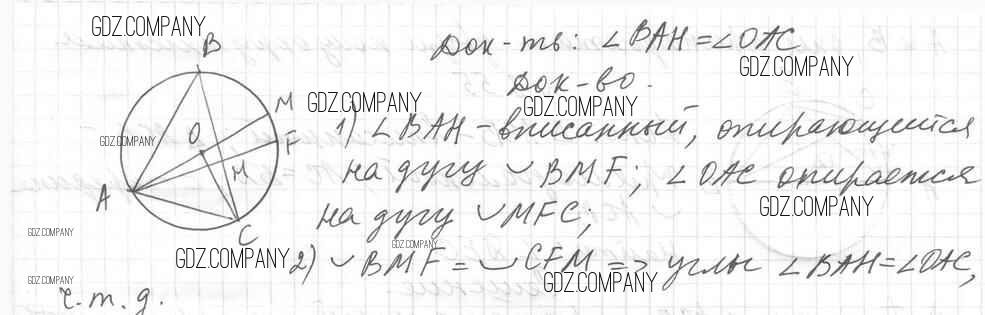 GDZ.COMPANY
B
Док-ть: ∠BAH = ∠OAC
GDZ.COMPANY
Док-во.
M GDZ.COMPANY GDZ.COMPANY
1) ∠BAH – вписанный, опирающейся
GDZ.COMPANY O F
H на дугу ◡ BMF; ∠OAC опирается
A GDZ.COMPANY
на дугу ◡MFC;
GDZ.COMPANY C
GDZ.COMPANY GDZ.COMPANY
2) ◡BMF = ◡CFM => углы ∠BAH = ∠OAC,
GDZ.COMPANY GDZ.COMPANY
ч.т.д.